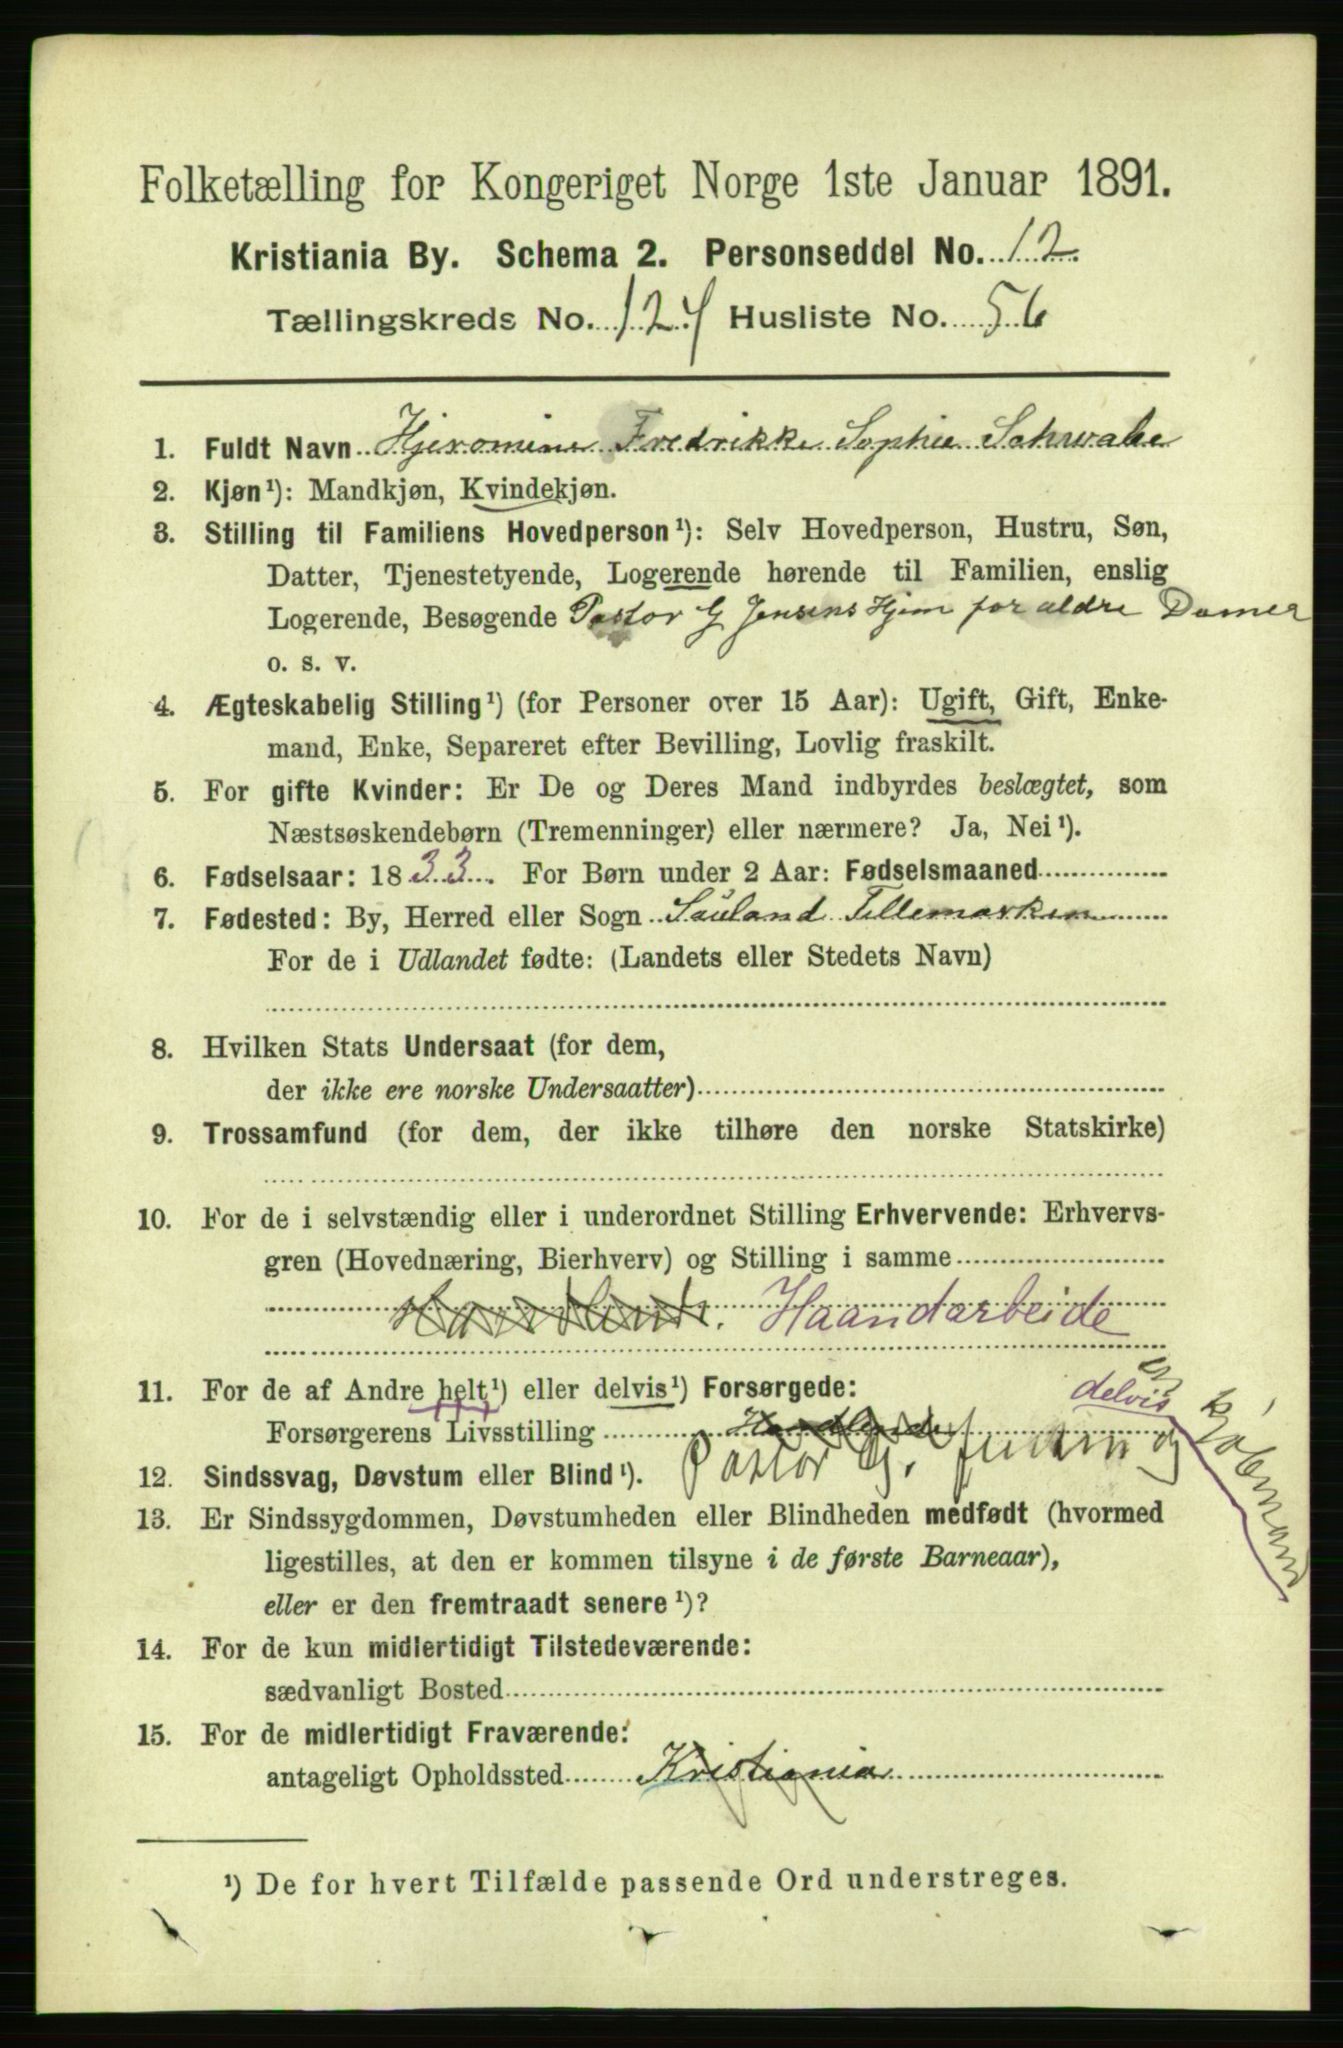 Folketælling for Kongeriget Norge 1ste Januar 1891.
Kristiania By. Schema 2. Personseddel No. 12
Tællingskreds No. 124 Husliste No. 56
1. Fuldt Navn Hjeromine Fredrikke Sophie Schwabe
2. Kjøn¹): Mandkjøn, Kvindekjøn.
3. Stilling til Familiens Hovedperson¹): Selv Hovedperson, Hustru, Søn,
Datter, Tjenestetyende, Logerende hørende til Familien, enslig
Logerende, Besøgende Pastor G Jensens Hjem for ældre Damer
o. s. v.
4. Ægteskabelig Stilling¹) (for Personer over 15 Aar): Ugift, Gift, Enke-
mand, Enke, Separeret efter Bevilling, Lovlig fraskilt.
5. For gifte Kvinder: Er De og Deres Mand indbyrdes beslægtet, som
Næstsøskendebørn (Tremenninger) eller nærmere? Ja, Nei¹).
6. Fødselsaar: 1833. For Børn under 2 Aar: Fødselsmaaned
7. Fødested: By, Herred eller Sogn Sauland Tellemarken
For de i Udlandet fødte: (Landets eller Stedets Navn)
8. Hvilken Stats Undersaat (for dem,
der ikke ere norske Undersaatter)
9. Trossamfund (for dem, der ikke tilhøre den norske Statskirke)
10. For de i selvstændig eller i underordnet Stilling Erhvervende: Erhvervs-
gren (Hovednæring, Bierhverv) og Stilling i samme
Haandarbeide
11. For de af Andre helt¹) eller delvis¹) Forsørgede: delvis
Forsørgerens Livsstilling
Pastor G. Jensen og
12. Sindssvag, Døvstum eller Blind¹).
13. Er Sindssygdommen, Døvstumheden eller Blindheden medfødt (hvormed
ligestilles, at den er kommen tilsyne i de første Barneaar),
eller er den fremtraadt senere¹)?
14. For de kun midlertidigt Tilstedeværende:
sædvanligt Bosted
15. For de midlertidigt Fraværende:
antageligt Opholdssted Kristiania
¹) De for hvert Tilfælde passende Ord understreges.